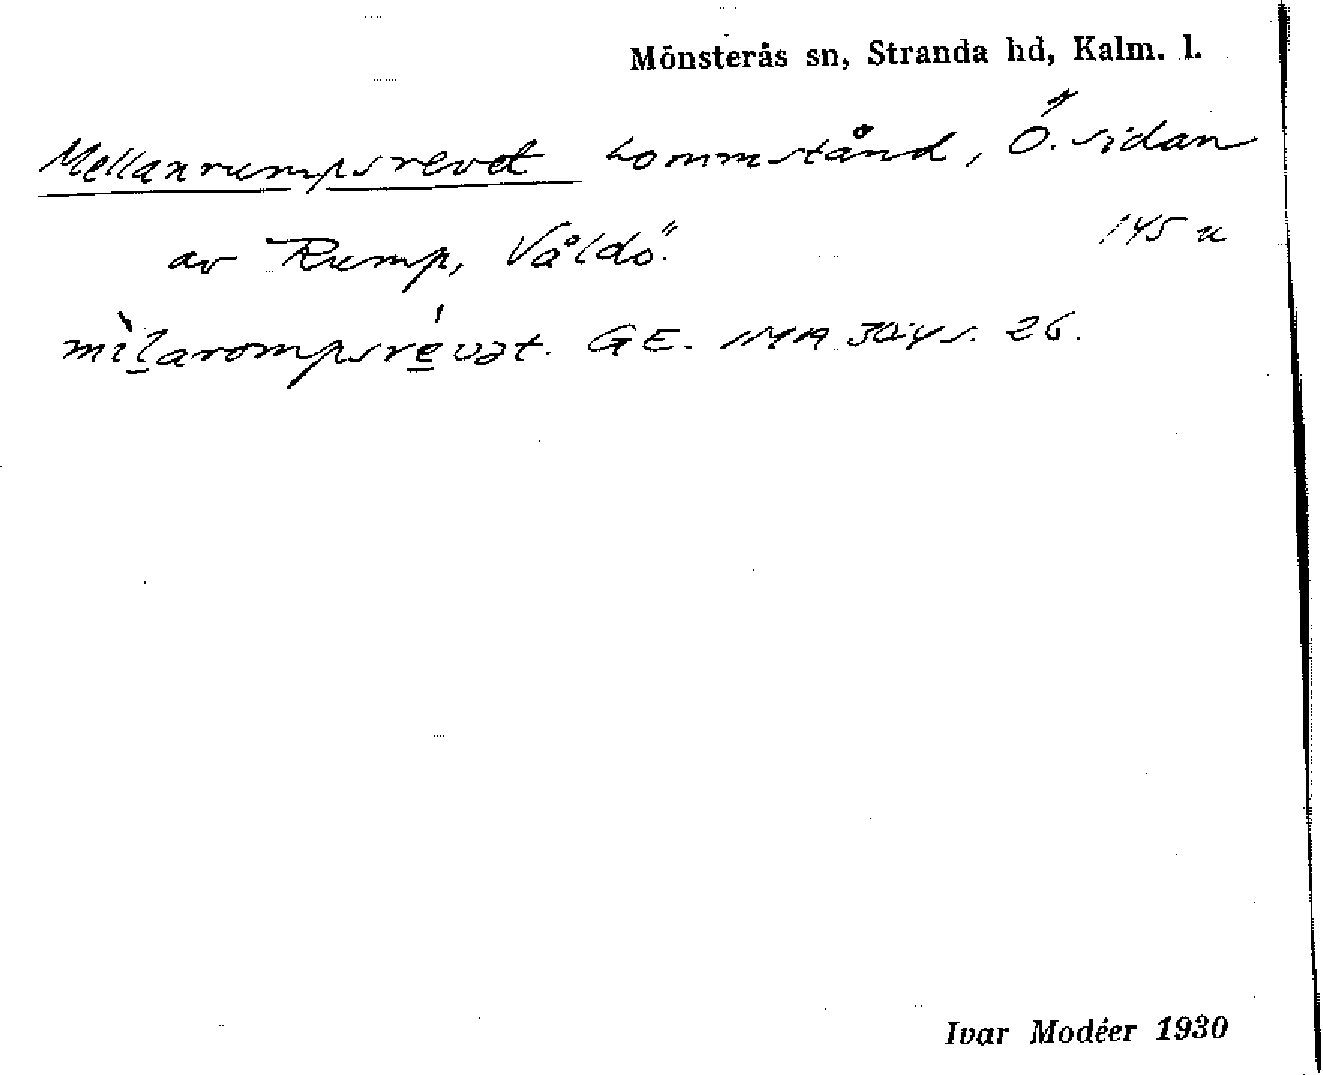 Mönsterås sn, Stranda hd, Kalm. l.
Mellanrumpsrevet lommstånd, Ö. sidan
av Rump, Våldö.
145 u
mìlarompsrévət. GE. IMA 30:4 s. 26.
Ivar Modéer 1930